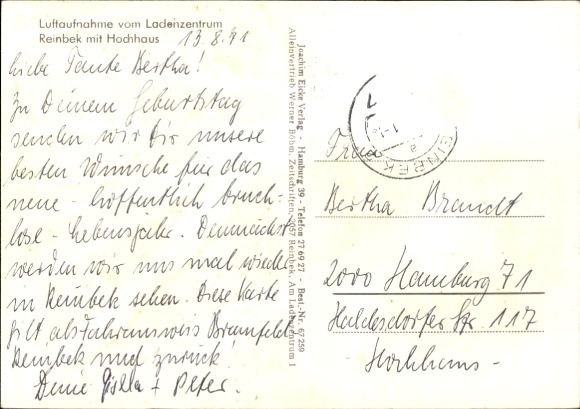 Luftaufnahme vom Ladenzentrum
Reinbek mit Hochhaus 13.8.71
Liebe Tante Bertha!
Zu Deinem Geburtstag
senden wir Dir unsere
besten Wünsche für das
neue - hoffentlich bruch-
lose - Lebensjahr. Demnächst
werden wir uns mal wieder
in Reinbek sehen. Diese Karte
gilt als Fahrausweis Bramfeld
Reinbek und zurück!
Deine Gisela + Peter.
Joachim Eicke Verlag - Hamburg 39 - Telefon 27 69 27 - Best.-Nr. 67 259
Alleinvertrieb Werner Böhm, Zeitschriften, 2057 Reinbek, Am Ladenzentrum 1
REINBEK
Frau
Bertha Brandt
2000 Hamburg 71
Haldesdorfer Str. 117
Hochhaus -